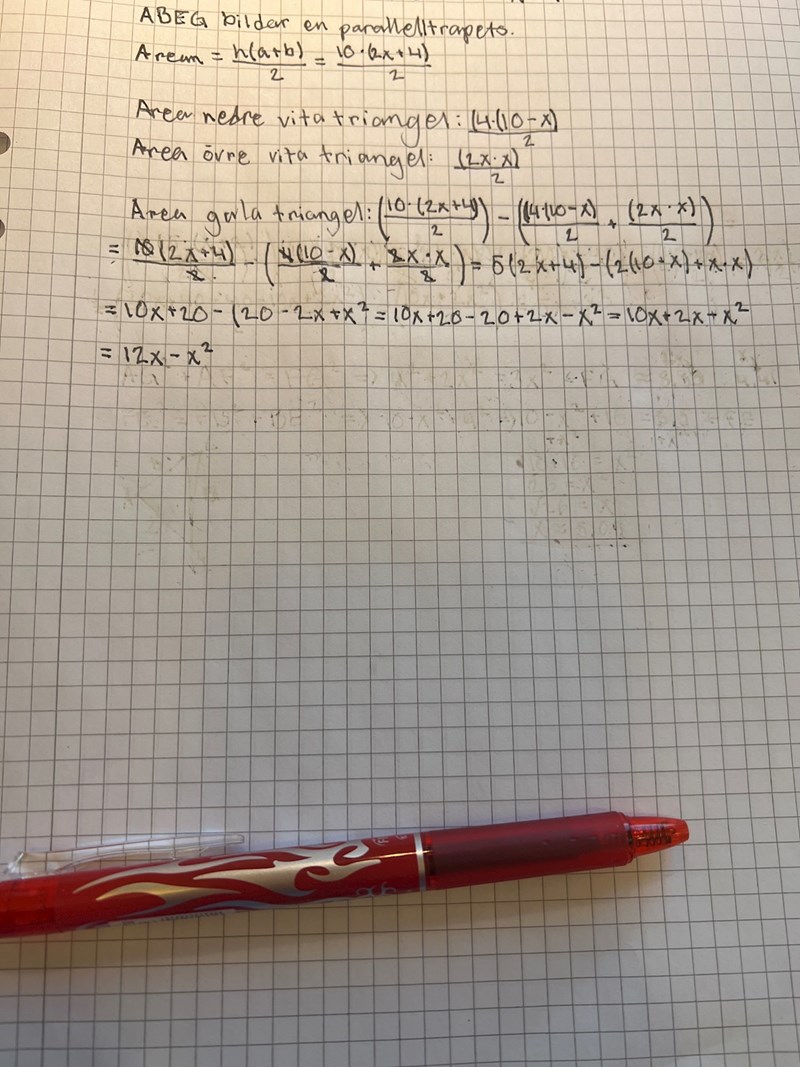 ABEG bildar en parallelltrapets.
Arean = h(a+b)/2 = 10·(2x+4)/2
Area nedre vita triangel: (4·(10-x)/2
Area övre vita triangel: (2x·x)/2
Area gula triangel: (10·(2x+4)/2) - ((4·(10-x)/2 + (2x·x)/2)
= 10(2x+4)/2 - (4(10-x)/2 + 2x·x/2) = 5(2x+4) - (2(10-x)+x·x)
= 10x+20 - (20-2x+x² = 10x+20-20+2x-x² = 10x+2x-x²
= 12x - x²